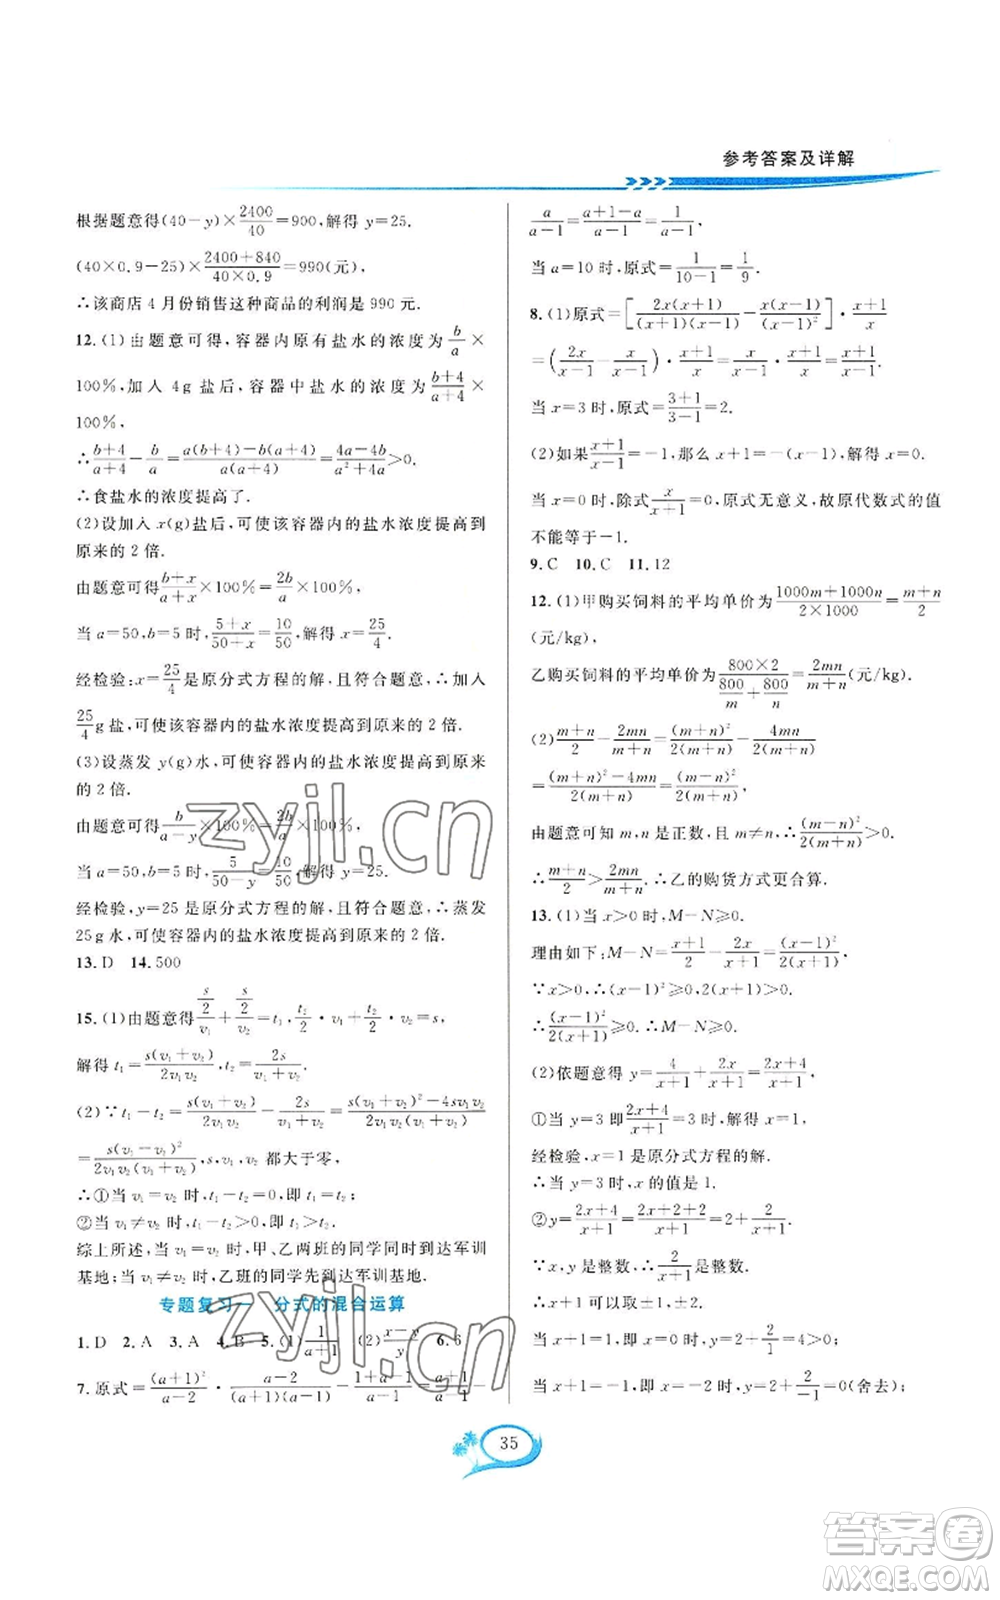 参考答案及详解
根据题意得(40-y)×2400/40=900,解得 y=25.
(40×0.9-25)×(2400+840)/(40×0.9)=990(元),
∴该商店 4 月份销售这种商品的利润是 990 元.
12.(1)由题意可得,容器内原有盐水的浓度为 b/a ×
100%,加入 4g 盐后,容器中盐水的浓度为 (b+4)/(a+4) ×
100%,
∴(b+4)/(a+4)-b/a=(a(b+4)-b(a+4))/(a(a+4))=(4a-4b)/(a²+4a)>0.
∴食盐水的浓度提高了.
(2)设加入 x(g)盐后,可使该容器内的盐水浓度提高到
原来的 2 倍.
由题意可得(b+x)/(a+x)×100%=2b/a×100%,
当 a=50,b=5 时,(5+x)/(50+x)=10/50,解得 x=25/4.
经检验:x=25/4是原分式方程的解,且符合题意,∴加入
25/4 g 盐,可使该容器内的盐水浓度提高到原来的 2 倍.
(3)设蒸发 y(g)水,可使该容器内的盐水浓度提高到原
来的 2 倍.
由题意可得 b/(a-y)×100%=2b/a×100%,
当 a=50,b=5 时,5/(50-y)=10/50,解得 y=25.
经检验,y=25 是原分式方程的解,且符合题意,∴蒸发
25g 水,可使该容器内的盐水浓度提高到原来的 2 倍.
13.D 14.500
15.(1)由题意得(s/2)/v₁+(s/2)/v₂=t₁,t₂/2·v₁+t₂/2·v₂=s,
解得 t₁=s(v₁+v₂)/(2v₁v₂),t₂=2s/(v₁+v₂).
(2)∵t₁-t₂=s(v₁+v₂)/(2v₁v₂)-2s/(v₁+v₂)=(s(v₁+v₂)²-4sv₁v₂)/(2v₁v₂(v₁+v₂))
=s(v₁-v₂)²/(2v₁v₂(v₁+v₂)),s,v₁,v₂ 都大于零,
∴①当 v₁=v₂ 时,t₁-t₂=0,即 t₁=t₂;
②当 v₁≠v₂ 时,t₁-t₂>0,即 t₁>t₂.
综上所述,当 v₁=v₂ 时,甲、乙两班的同学同时到达军训
基地;当 v₁≠v₂ 时,乙班的同学先到达军训基地.
专题复习一 分式的混合运算
1.D 2.A 3.A 4.B 5.(1)1/(a+1) (2)(x-y)/y 6.6
7.原式=(a+1)²/(a-2)·(a-2)/((a+1)(a-1))-(1+a-1)/(a-1)=(a+1)/(a-1)-
a/(a-1)=(a+1-a)/(a-1)=1/(a-1),
当 a=10 时,原式=1/(10-1)=1/9.
8.(1)原式=[2x(x+1)/((x+1)(x-1))-x(x-1)/(x-1)²]·(x+1)/x
=(2x/(x-1)-x/(x-1))·(x+1)/x=x/(x-1)·(x+1)/x=(x+1)/(x-1).
当 x=3 时,原式=(3+1)/(3-1)=2.
(2)如果(x+1)/(x-1)=-1,那么 x+1=-(x-1),解得 x=0.
当 x=0 时,除式 x/(x+1)=0,原式无意义,故原代数式的值
不能等于-1.
9.C 10.C 11.12
12.(1)甲购买饲料的平均单价为(1000m+1000n)/(2×1000)=(m+n)/2
(元/kg),
乙购买饲料的平均单价为(800×2)/(800/m+800/n)=2mn/(m+n)(元/kg).
(2)(m+n)/2-2mn/(m+n)=(m+n)²/(2(m+n))-4mn/(2(m+n))
=((m+n)²-4mn)/(2(m+n))=(m-n)²/(2(m+n)).
由题意可知 m,n 是正数,且 m≠n,∴(m-n)²/(2(m+n))>0.
∴(m+n)/2>2mn/(m+n).∴乙的购货方式更合算.
13.(1)当 x>0 时,M-N≥0.
理由如下:M-N=(x+1)/2-2x/(x+1)=(x-1)²/(2(x+1)).
∵x>0,∴(x-1)²≥0,2(x+1)>0.
∴(x-1)²/(2(x+1))≥0.∴M-N≥0.
(2)依题意得 y=4/(x+1)+2x/(x+1)=(2x+4)/(x+1).
①当 y=3 即(2x+4)/(x+1)=3 时,解得 x=1.
经检验,x=1 是原分式方程的解.
∴当 y=3 时,x 的值是 1.
②y=(2x+4)/(x+1)=(2x+2+2)/(x+1)=2+2/(x+1).
∵x,y 是整数,
∴2/(x+1)是整数.
∴x+1 可以取±1,±2.
当 x+1=1,即 x=0 时,y=2+2/1=4>0;
当 x+1=-1 时,即 x=-2 时,y=2+2/(-1)=0(舍去);
35
zyjl.cn
zyjl.cn
答案卷
MXQE.COM